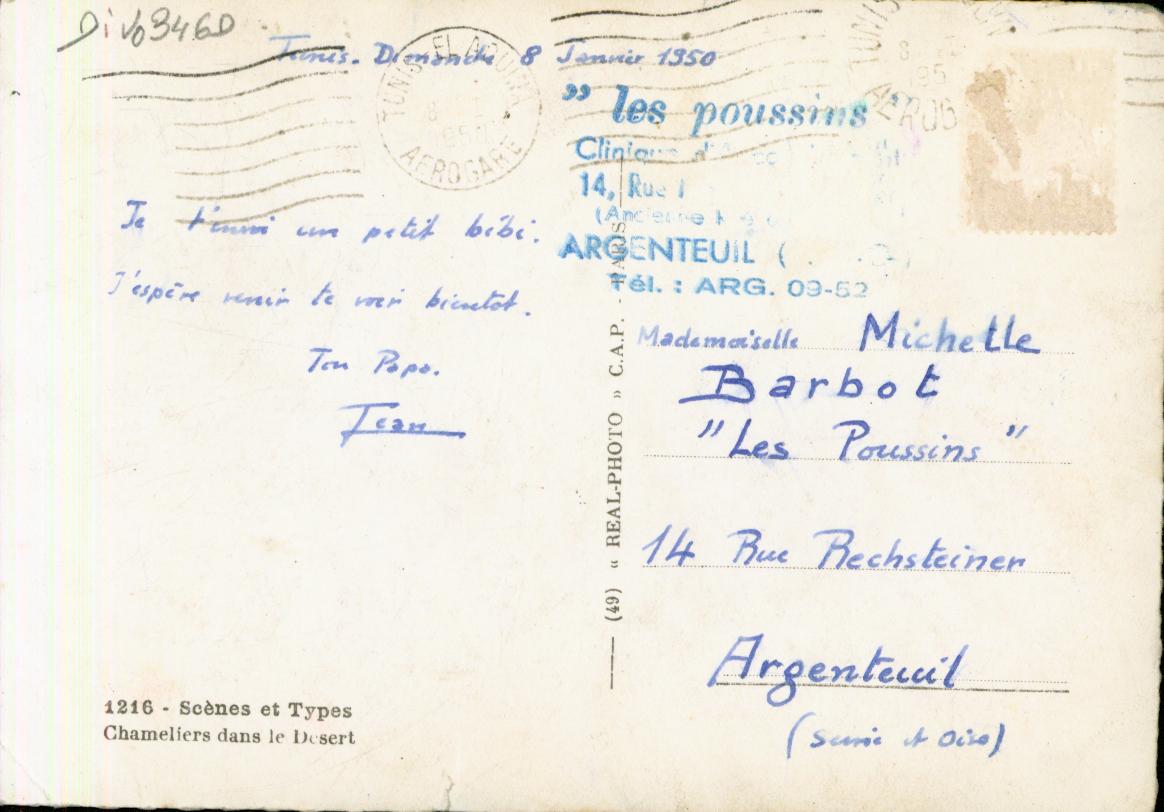 Div 8460
Tunis. Dimanche 8 Janvier 1950
TUNIS-EL AOUINA
8
1950
AEROGARE
TUNIS
8
195
AEROG
" les poussins "
Clinique
14, Rue
(Ancienne
ARGENTEUIL (
Tél. : ARG. 09-52
Je t'envoi un petit bébé.
J'espère venir te voir bientot.
Ton Papa.
Jean
(49) « REAL-PHOTO » C.A.P. - PARIS
Mademoiselle Michelle
Barbot
"Les Poussins"
14 Rue Rechsteiner
Argenteuil
(Seine et Oise)
1216 - Scènes et Types
Chameliers dans le Désert